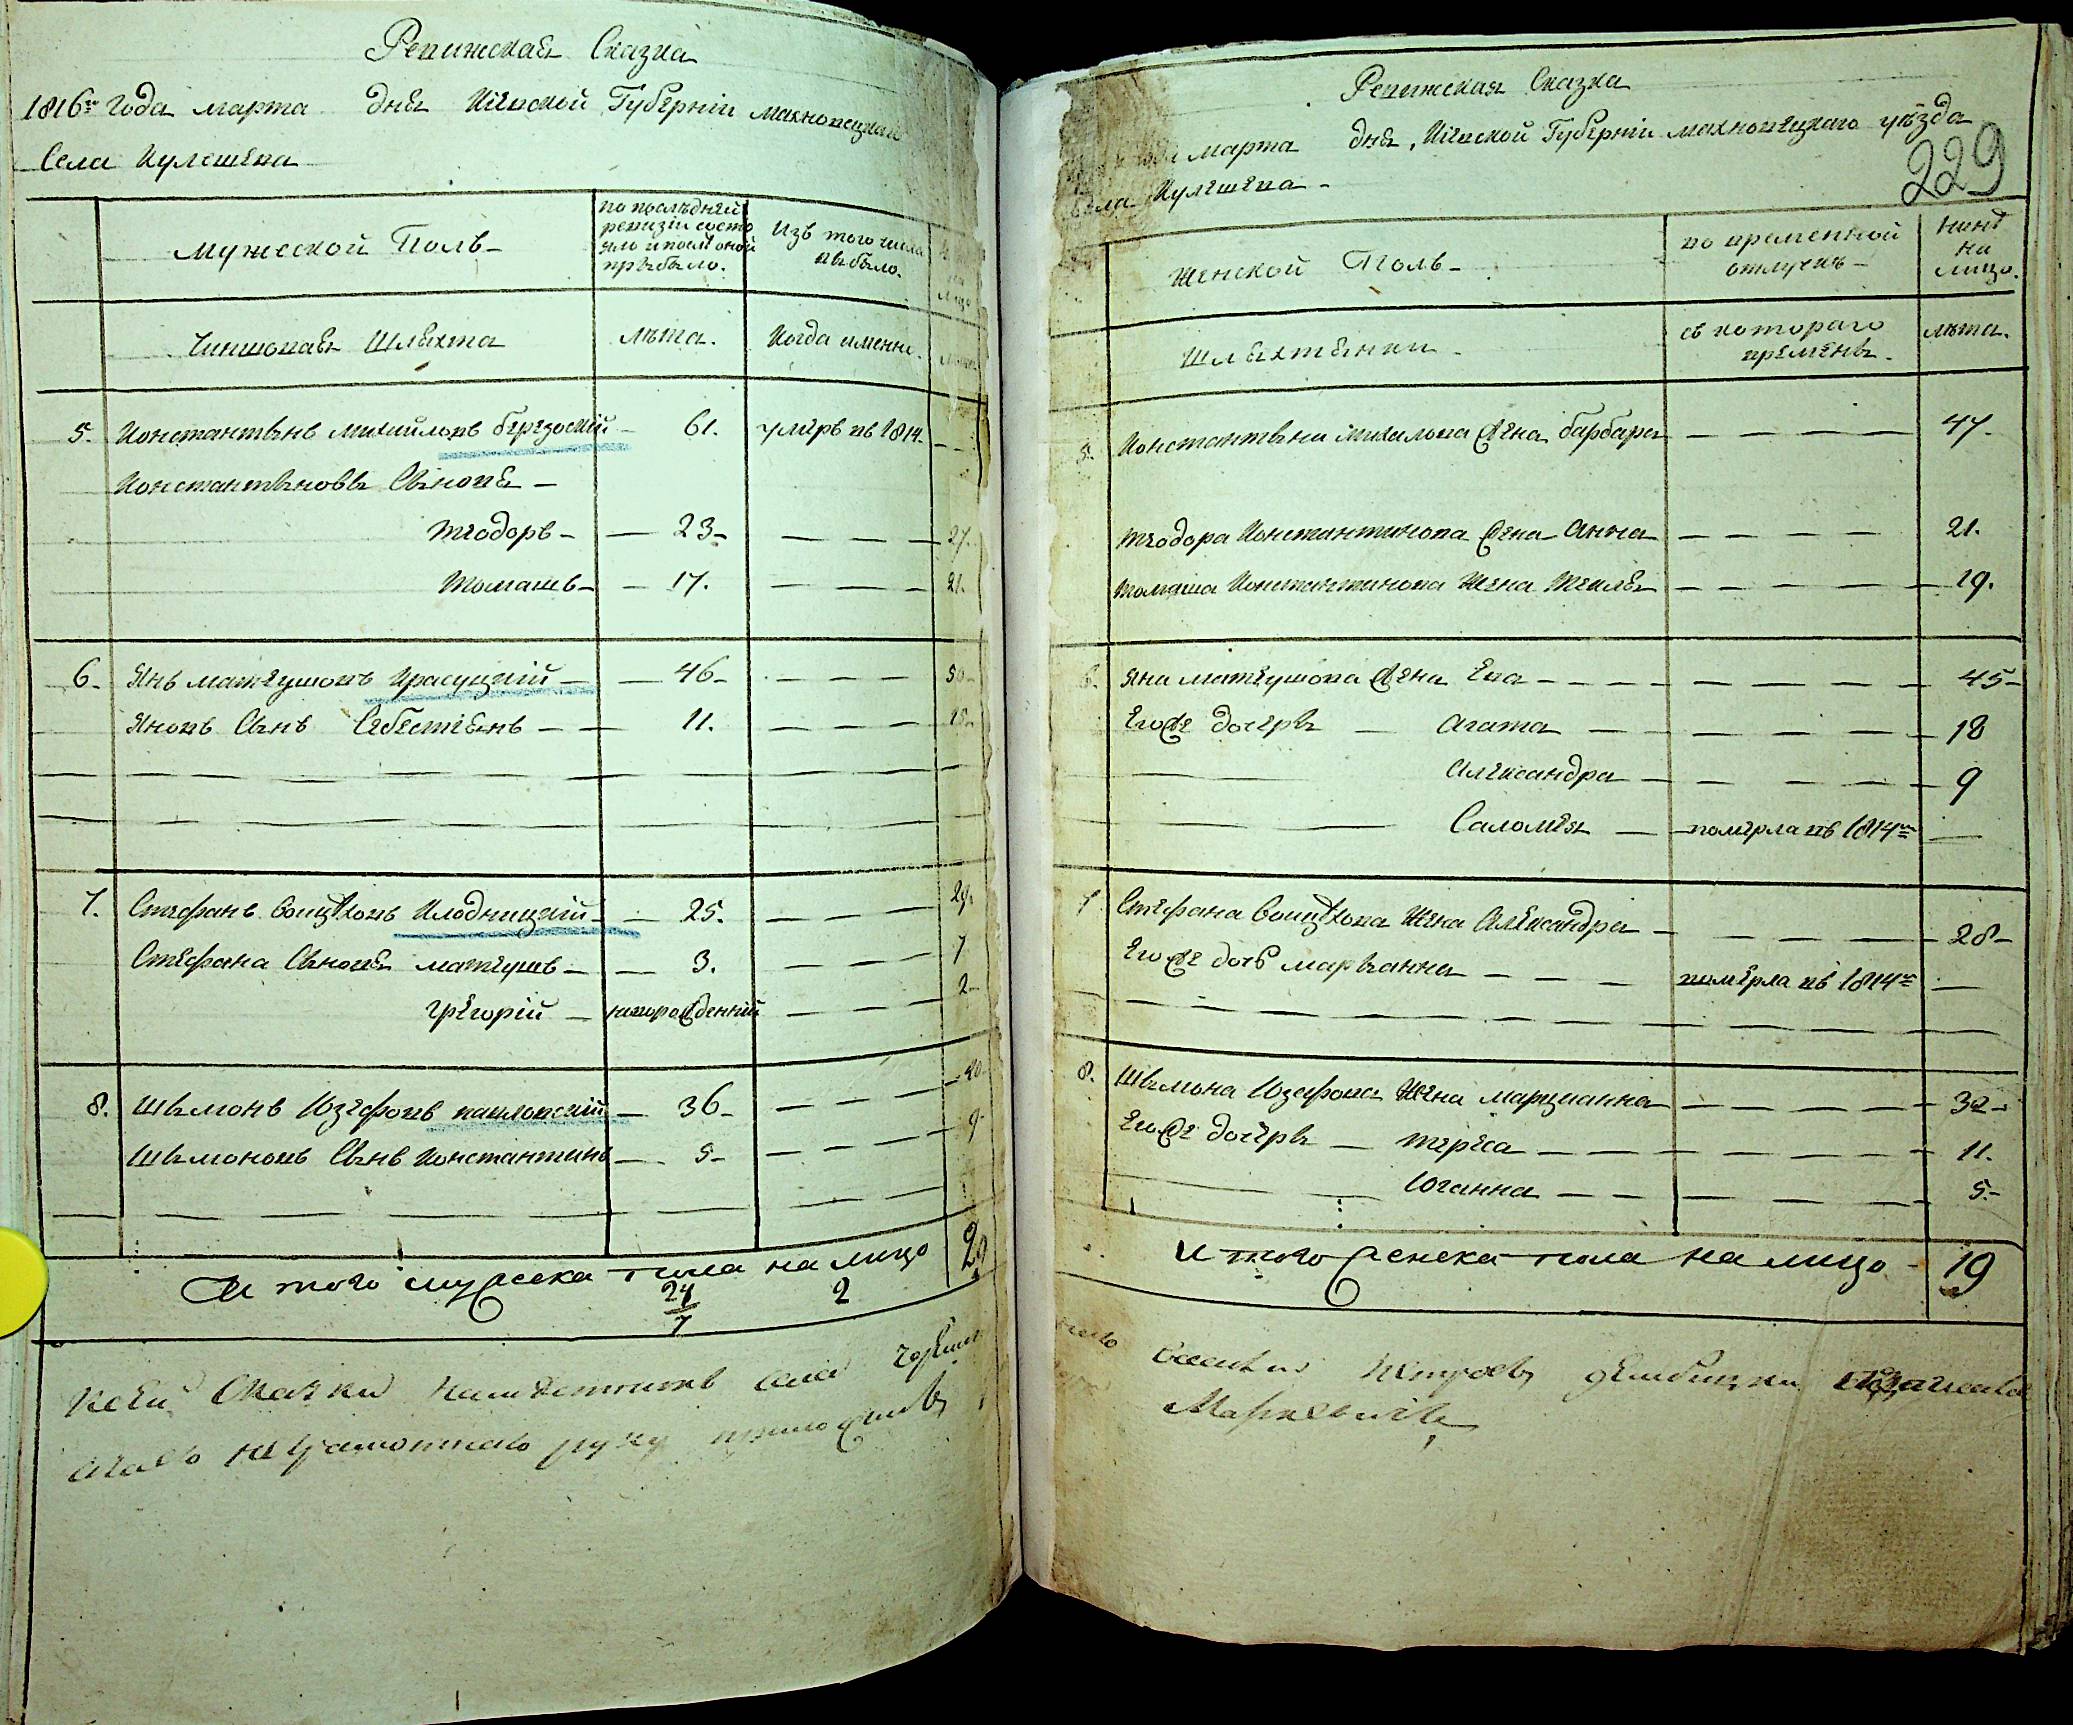 Ревижская Сказка
1816го года марта дня Киевской Губернии Махновецкой
Села Кулешева
Мужеской Полъ
по последней ревизии состояло и после оной прыбыло.
Изъ того числа выбыло.
Чиншовая Шляхта
лета.
Когда именно.
5. Константынъ Михайловъ Березовский 61. умеръ въ 1814
Константыновы Сыновя
Теодоръ 23 27.
Томашъ 17. 21.
6. Янъ Матеушовъ Красуцкий 46 50
Яновъ Сынъ Себестянъ 11. 15
7. Стефанъ Войцеховъ Клодницкий 25. 29.
Стефана Сыновя Матеушъ 3. 7
Грегорий новорожденний 2
8. Шымонъ Юзефовъ Павловский 36 40
Шымоновъ Сынъ Константинъ 5 9
И того мужеска пола на лицо 29
24 2
7
Руку приложилъ
Ревижская Сказка
года марта дня, Киевской Губернии Махновецкаго уезда
Села Кулешева
229
Женской Полъ
во временной отлучке
ныне на лицо.
Шляхтянки
съ котораго времены
лета.
5. Константына Михалова жена Барбара 47.
Теодора Константинова жена Анна 21.
Томаша Константинова Жена Текля 19.
6. Яна Матеушова жена Ева 45
Егоже дочеры Агата 18
Александра 9
Саломея померла въ 1814го
7 Стефана Войцехова Жена Александра 28
Егоже дочъ Марыанна померла въ 1814го
8. Шымона Юзефова Жена Марцианна 32
Егоже дочеры Тереса 11.
Юганна 5.
И того женска пола на лицо 19
Маркевичъ